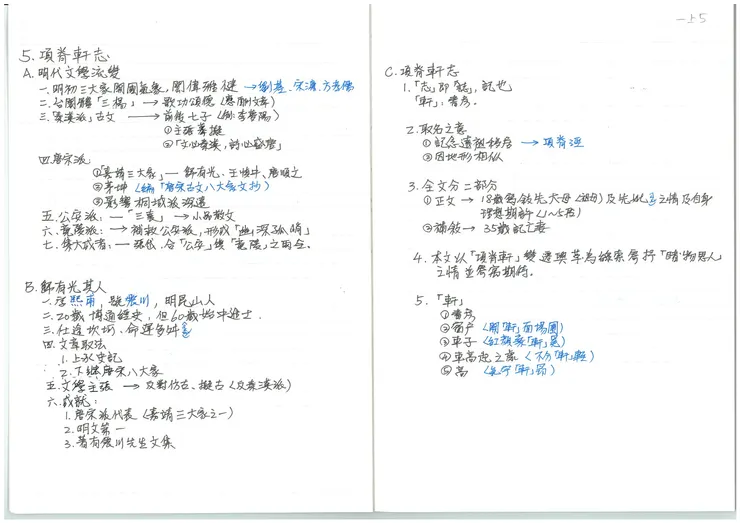 一上5
5. 項脊軒志
A. 明代文學流變
一.明初三大家開國氣象,閎偉雅健 →劉基、宋濂、方孝儒
二.台閣體「三楊」→歌功頌德(應酬文章)
三.「秦漢派」古文 → 前後七子(例:李夢陽)
①主張摹擬
②「文必秦漢,詩必盛唐」
四.唐宋派:
①「嘉靖三大家」— 歸有光、王慎中、唐順之
②茅坤(編「唐宋古文八大家文抄」)
③影響桐城派深遠
五.公安派:—「三袁」→小品散文
六.竟陵派:→補救公安派,形成「幽深孤峭」
七.集大成者:—張岱,合「公安」後「竟陵」之兩金。
B. 歸有光其人
一.字熙甫,號震川,明昆山人
二.20歲博通經史,但60歲始中進士
三.仕途坎坷、命運多舛
四.文章取法
1.上承史記
2.下繼唐宋八大家
五.文學主張 → 反對仿古、擬古(反秦漢派)
六.成就:
1.唐宋派代表(嘉靖三大家之一)
2.明文第一
3.著有震川先生文集
C. 項脊軒志
1.「志」即「誌」,記也
「軒」:書房。
2.取名之意
①記念遠祖移居 → 項脊涇
②因地形相似
3.全文分二部分
①正文 → 18歲寫敘先大母(祖母)及先妣之情及自身
理想期許(1~5段)
②補敘→ 35歲記亡妻
4.本文以「項脊軒」變遷興革為線索寫抒「睹物思人」
之情並寄寓期待。
5.「軒」
①書房
②窗戶(開「軒」面場圃)
③車子(紅顏棄「軒」冕)
④車高起之意(不分「軒」輊)
⑤高(氣宇「軒」昂)